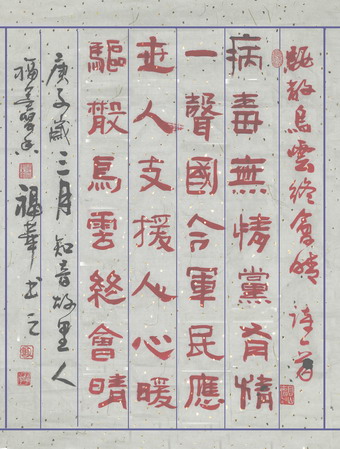 驅散烏雲終會晴 詩一首
病毒無情黨有情
一聲國令軍民應
世人支援人心暖
驅散烏雲終會晴
庚子歲三月知音故里人
福華书之